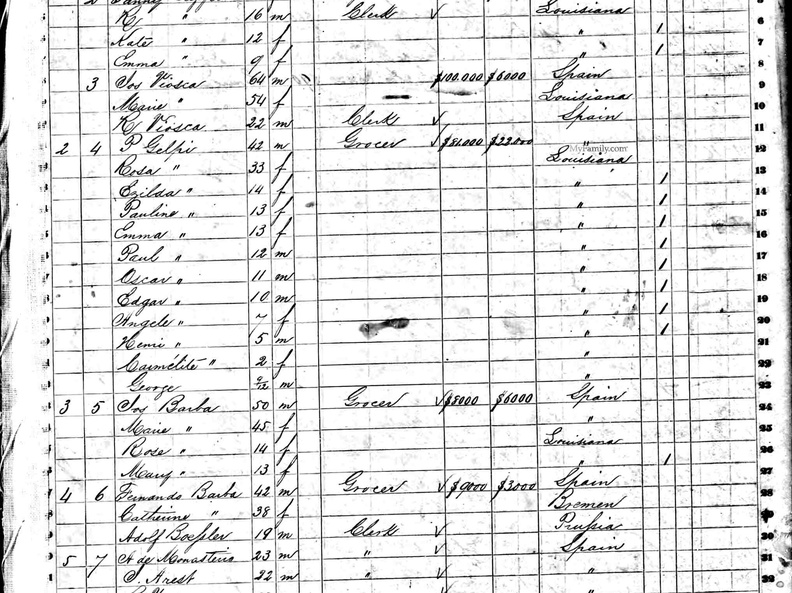 K " 16 m Clerk ✓ Louisiana
Kate " 12 f " 1 6
Emma " 9 f " 1 7
3 Jos Viosca 64 m $100.000 $6000 Spain 8
Marie " 54 f Louisiana 9
R Viosca 22 m Clerk ✓ Spain 10
2 4 P Gelpi 42 m Grocer ✓ $81.000 $23.000 " 11
MyFamily.com
Rosa " 33 f Louisiana 12
" 14 f " 1 13
Pauline " 13 f " 1 14
Emma " 13 f " 1 15
Paul " 12 m " 1 16
Oscar " 11 m " 1 17
Edgar " 10 m " 1 18
Angele " 7 f " 1 19
Henri " 5 m " 1 20
Carmélite " 2 f " 21
George m " 22
3 5 Jos Barba 50 m Grocer ✓ $8000 $6000 Spain 23
Marie " 45 f " 24
Rose " 14 f Louisiana 25
Mary " 13 f " 1
4 6 Fernando Barba 42 m Grocer ✓ $9000 $3000 Spain 27
Catherine " 38 f Bremen 28
Adolf 19 m Clerk ✓ Prussia
5 7 A de Monasterio 23 m " ✓ Spain
J. Arest 22 m " ✓ "